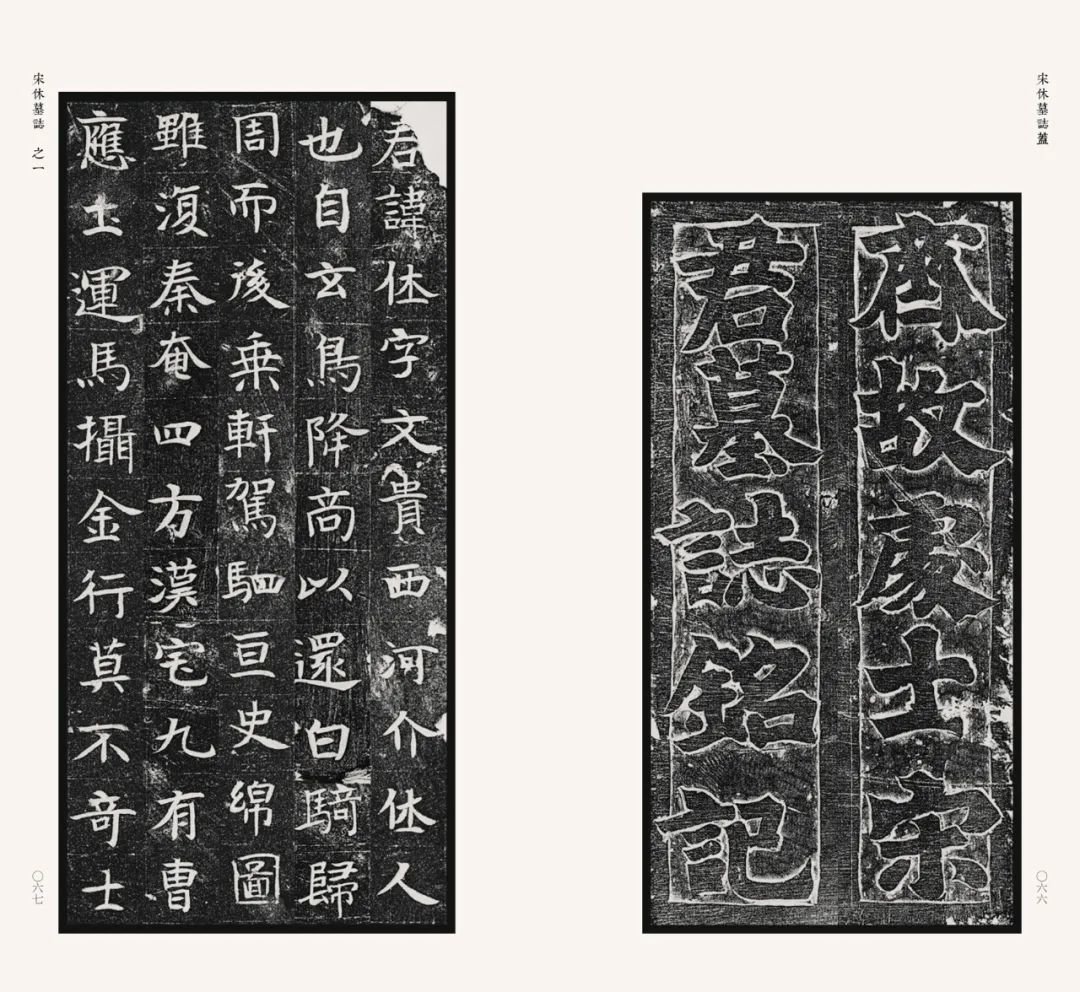 宋休墓誌蓋
齊故處士宋
君墓誌銘記
〇六六
宋休墓誌 之一
君諱休字文貴西河介休人
也自玄鳥降商以還白騎歸
周而後乗軒駕駟亘史綿圖
雖復秦奄四方漢宅九有曹
應土運馬攝金行莫不奇士
〇六七